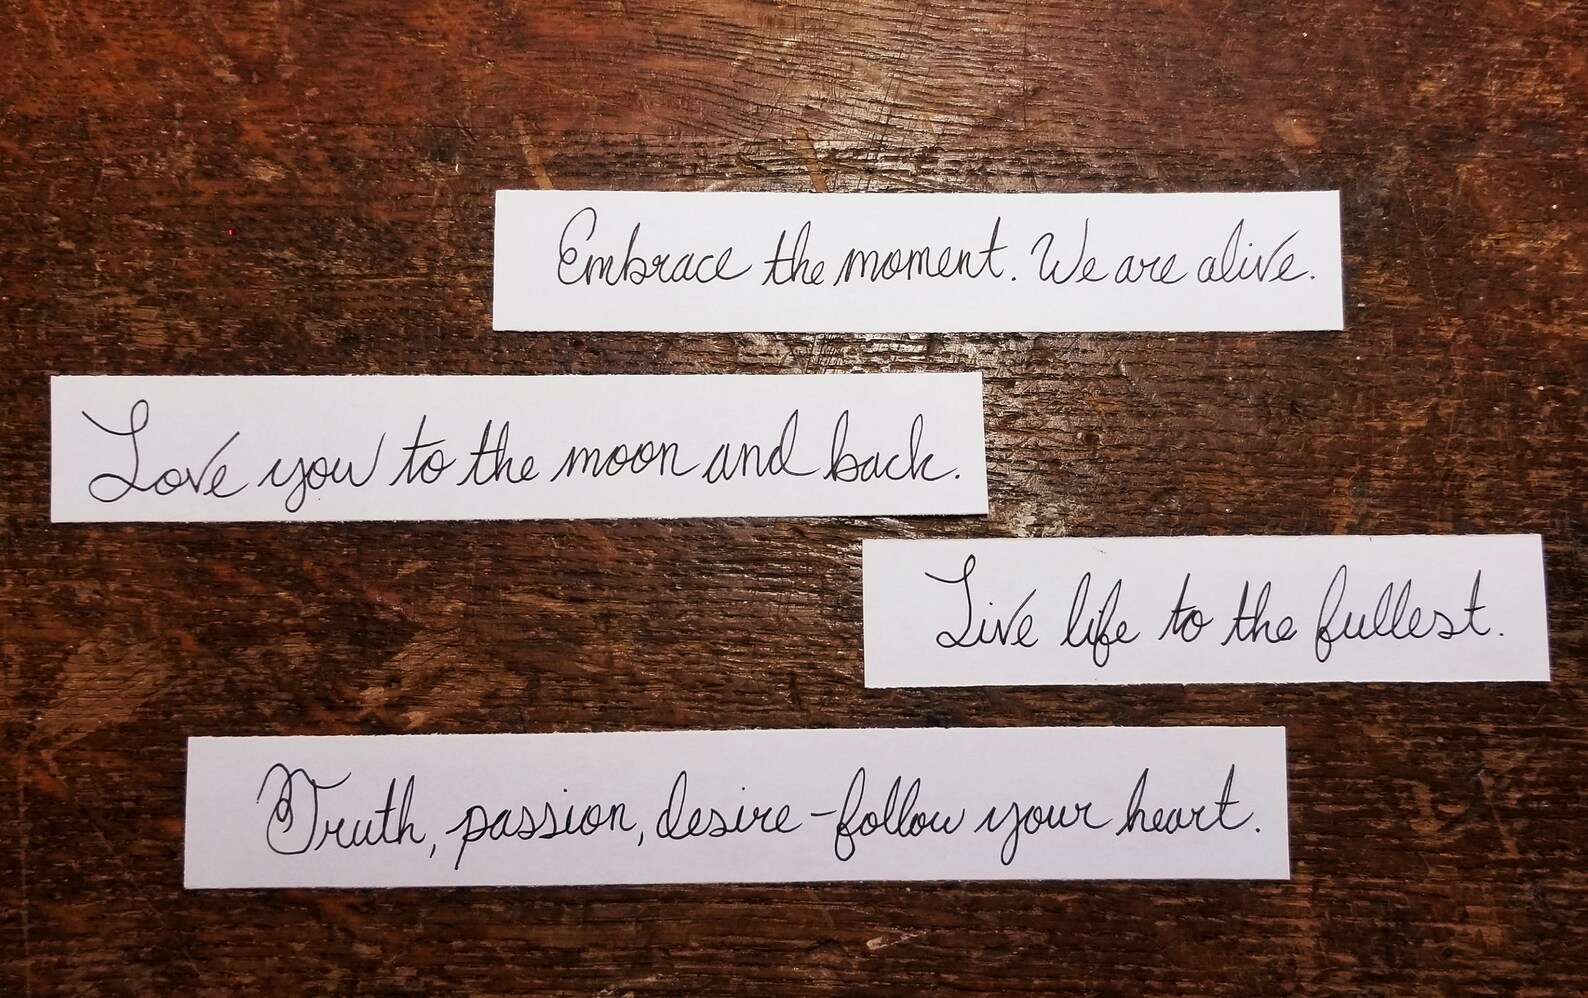 Embrace the moment. We are alive.
Love you to the moon and back.
Live life to the fullest.
Truth, passion, desire - follow your heart.